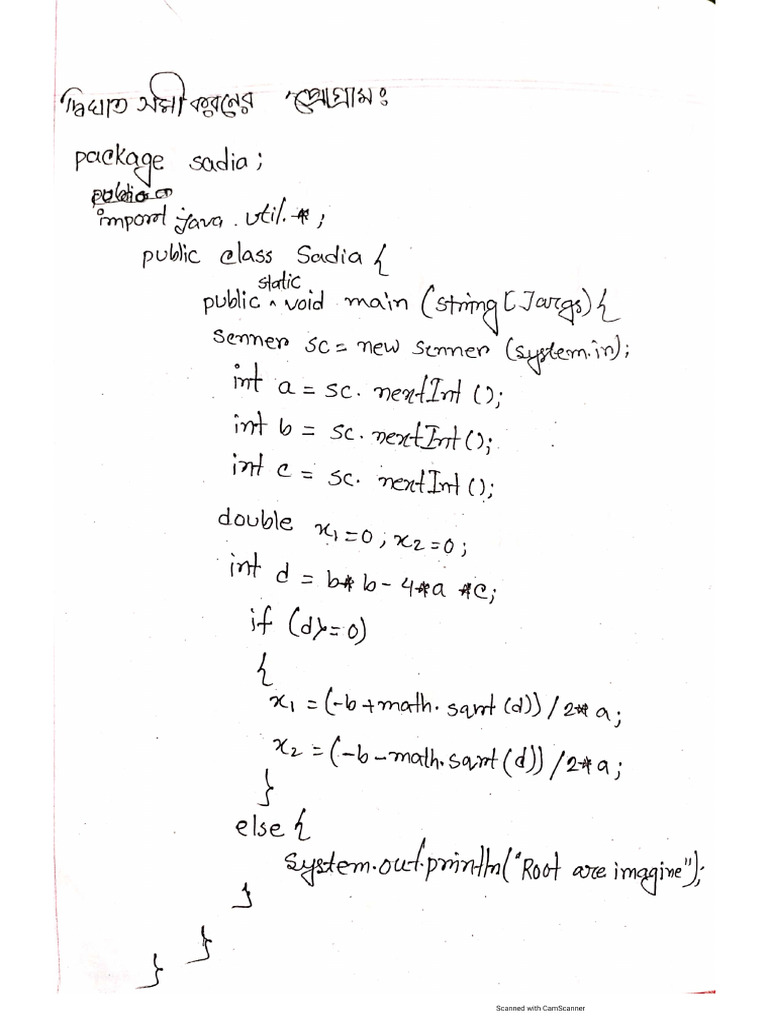 দ্বিঘাত সমীকরনের প্রোগ্রামঃ
package sadia;
import java.util.*;
public class Sadia {
public static void main (string[]args){
Senner sc = new senner (system.in);
int a = sc. nextInt ();
int b = sc. nextInt();
int c = sc. nextInt ();
double x1=0, x2=0;
int d = b*b-4*a*c;
if (d>=0)
{
x1 = (-b+math.sqrt(d))/2*a;
x2 = (-b-math.sqrt(d))/2*a;
}
else {
system.out.println("Root are imagine");
}
}
}
Scanned with CamScanner